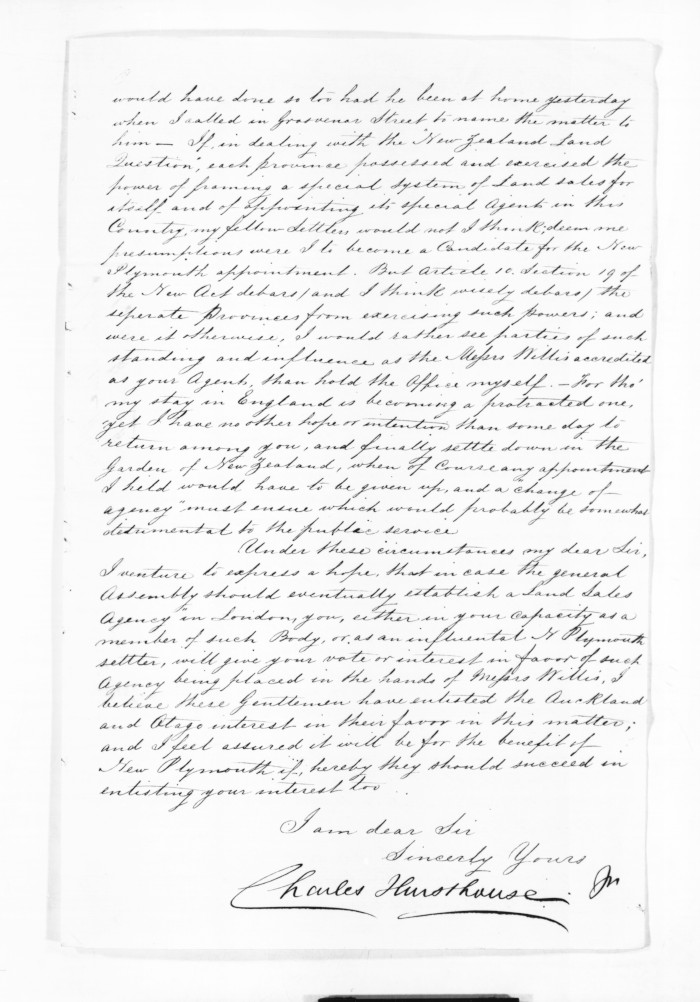 would have done so too had he been at home yesterday
when I called in Grosvenar Street to name the matter to
him — If, in dealing with the "New Zealand Land
Question", each province possessed and exercised the
power of framing a special system of Land sales for
itself and of appointing its special Agent in this
Country, my fellow Settlers, would not I think, deem me
presumptions were I to become a Candidate for the New
Plymouth appointment. But Article 10. Section 19 of
the New Act debars / and I think wisely debars / the
seperate Provinces from exercising such powers; and
were it otherwise, I would rather see parties of such
standing and influence as the Messrs Willis accredited
as your Agent, than hold the Office myself. — For tho'
my stay in England is becoming a protracted one,
yet I have no other hope or intention than some day to
return among you, and finally settle down in the
Garden of New Zealand, when of course any appointment
I held would have to be given up, and a "change of
agency" must ensue which would probably be somewhat
detrimental to the public service
Under these circumstances my dear Sir,
I venture to express a hope, that in case the general
Assembly should eventually establish a "Land Sales
Agency" in London, you, either in your capacity as a
member of such Body, or, as an influental N Plymouth
settler, will give your vote or interest in favor of such
Agency being placed in the hands of Messrs Willis, I
believe these Gentlemen have enlisted the Auckland
and Otago interest in their favor in this matter;
and I feel assured it will be for the benefit of
New Plymouth if, hereby they should succeed in
enlisting your interest too ..
I am dear Sir
Sincerly Yours
Charles Hursthouse. Jnr